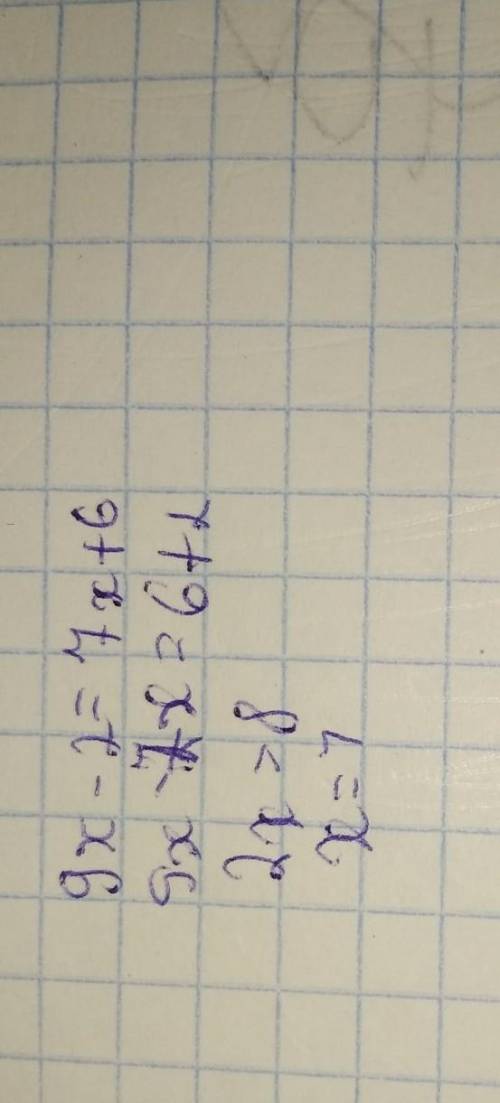 9x - 2 = 7x + 6
9x - 7x = 6 + 2
2x = 8
x = 7